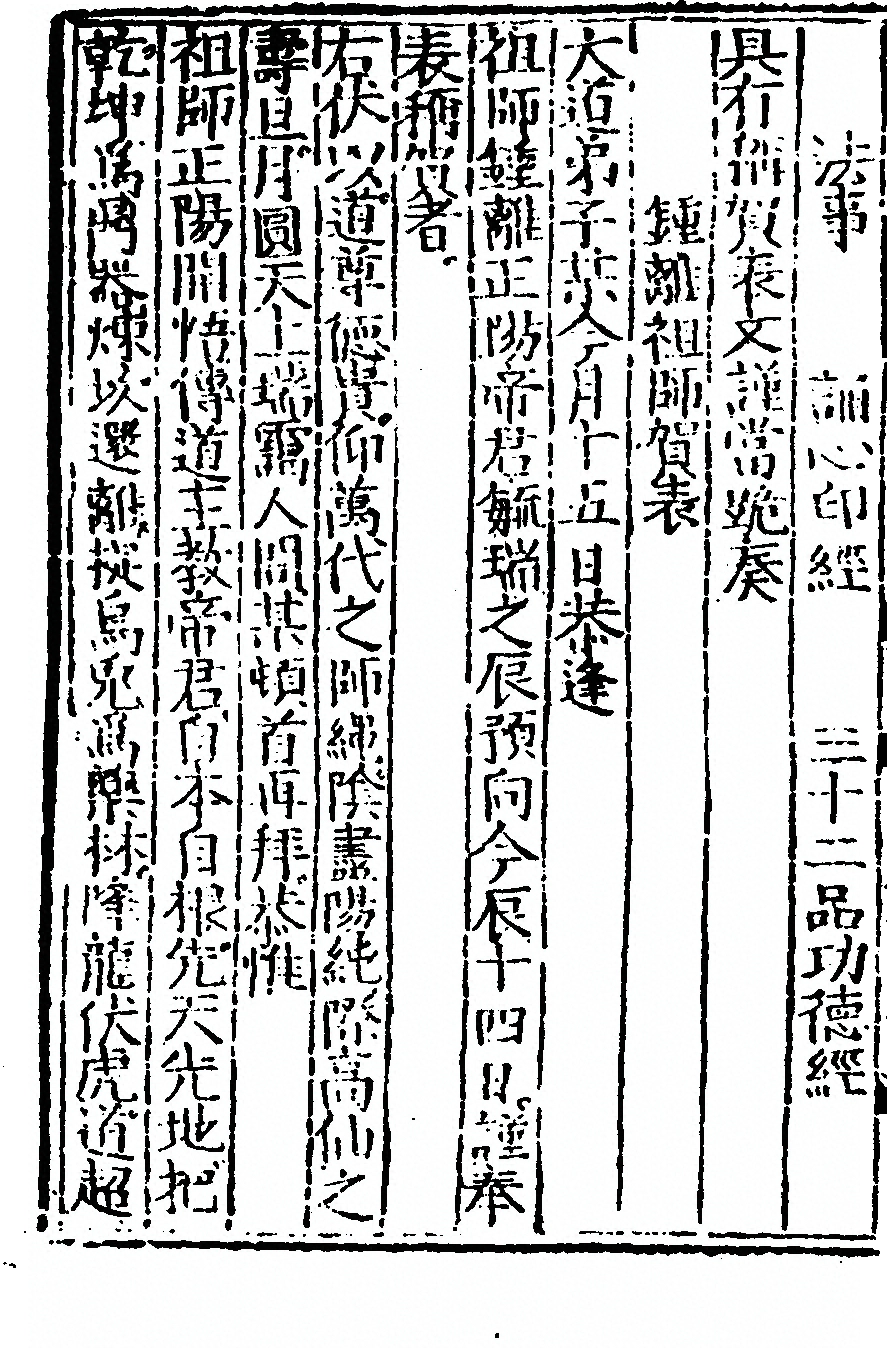 法事　誦心印經　三十二品功德經
具有稱賀表文謹當跪奏
鍾離祖師賀表
大道弟子某今月十五日恭逢
祖師鍾離正陽帝君毓瑞之辰預向今辰十四日謹奉
表稱賀者
右伏以道尊德貴仰萬代之師繩陰盡陽純際高仙之
壽旦月圓天上瑞靄人間某頓首再拜恭惟
祖師正陽開悟傳道主教帝君自本自根先天先地把
乾坤為鬥器煉坎還離擬烏兔為藥材降龍伏虎道超